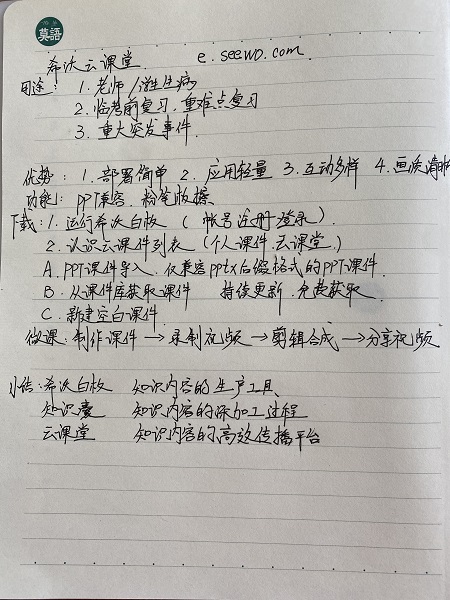 莫語
希沃云课堂 e.seewo.com.
用途: 1.老师/学生生病
2.临考前复习.重难点复习
3.重大突发事件.
优势: 1.部署简单 2.应用轻量 3.互动多样 4.画质清晰
功能: PPT兼容.
下载: 1.运行希沃白板 (帐号注册登录)
2.认识云课件列表 (个人课件.云课堂.)
A.PPT课件导入.仅兼容pptx后缀格式的PPT课件.
B.从课件库获取课件 持续更新.免费获取.
C.新建空白课件
微课: 制作课件→录制视频→剪辑合成→分享视频
小结: 希沃白板 知识内容的生产工具、
知识囊 知识内容的深加工过程
云课堂 知识内容的高效传播平台